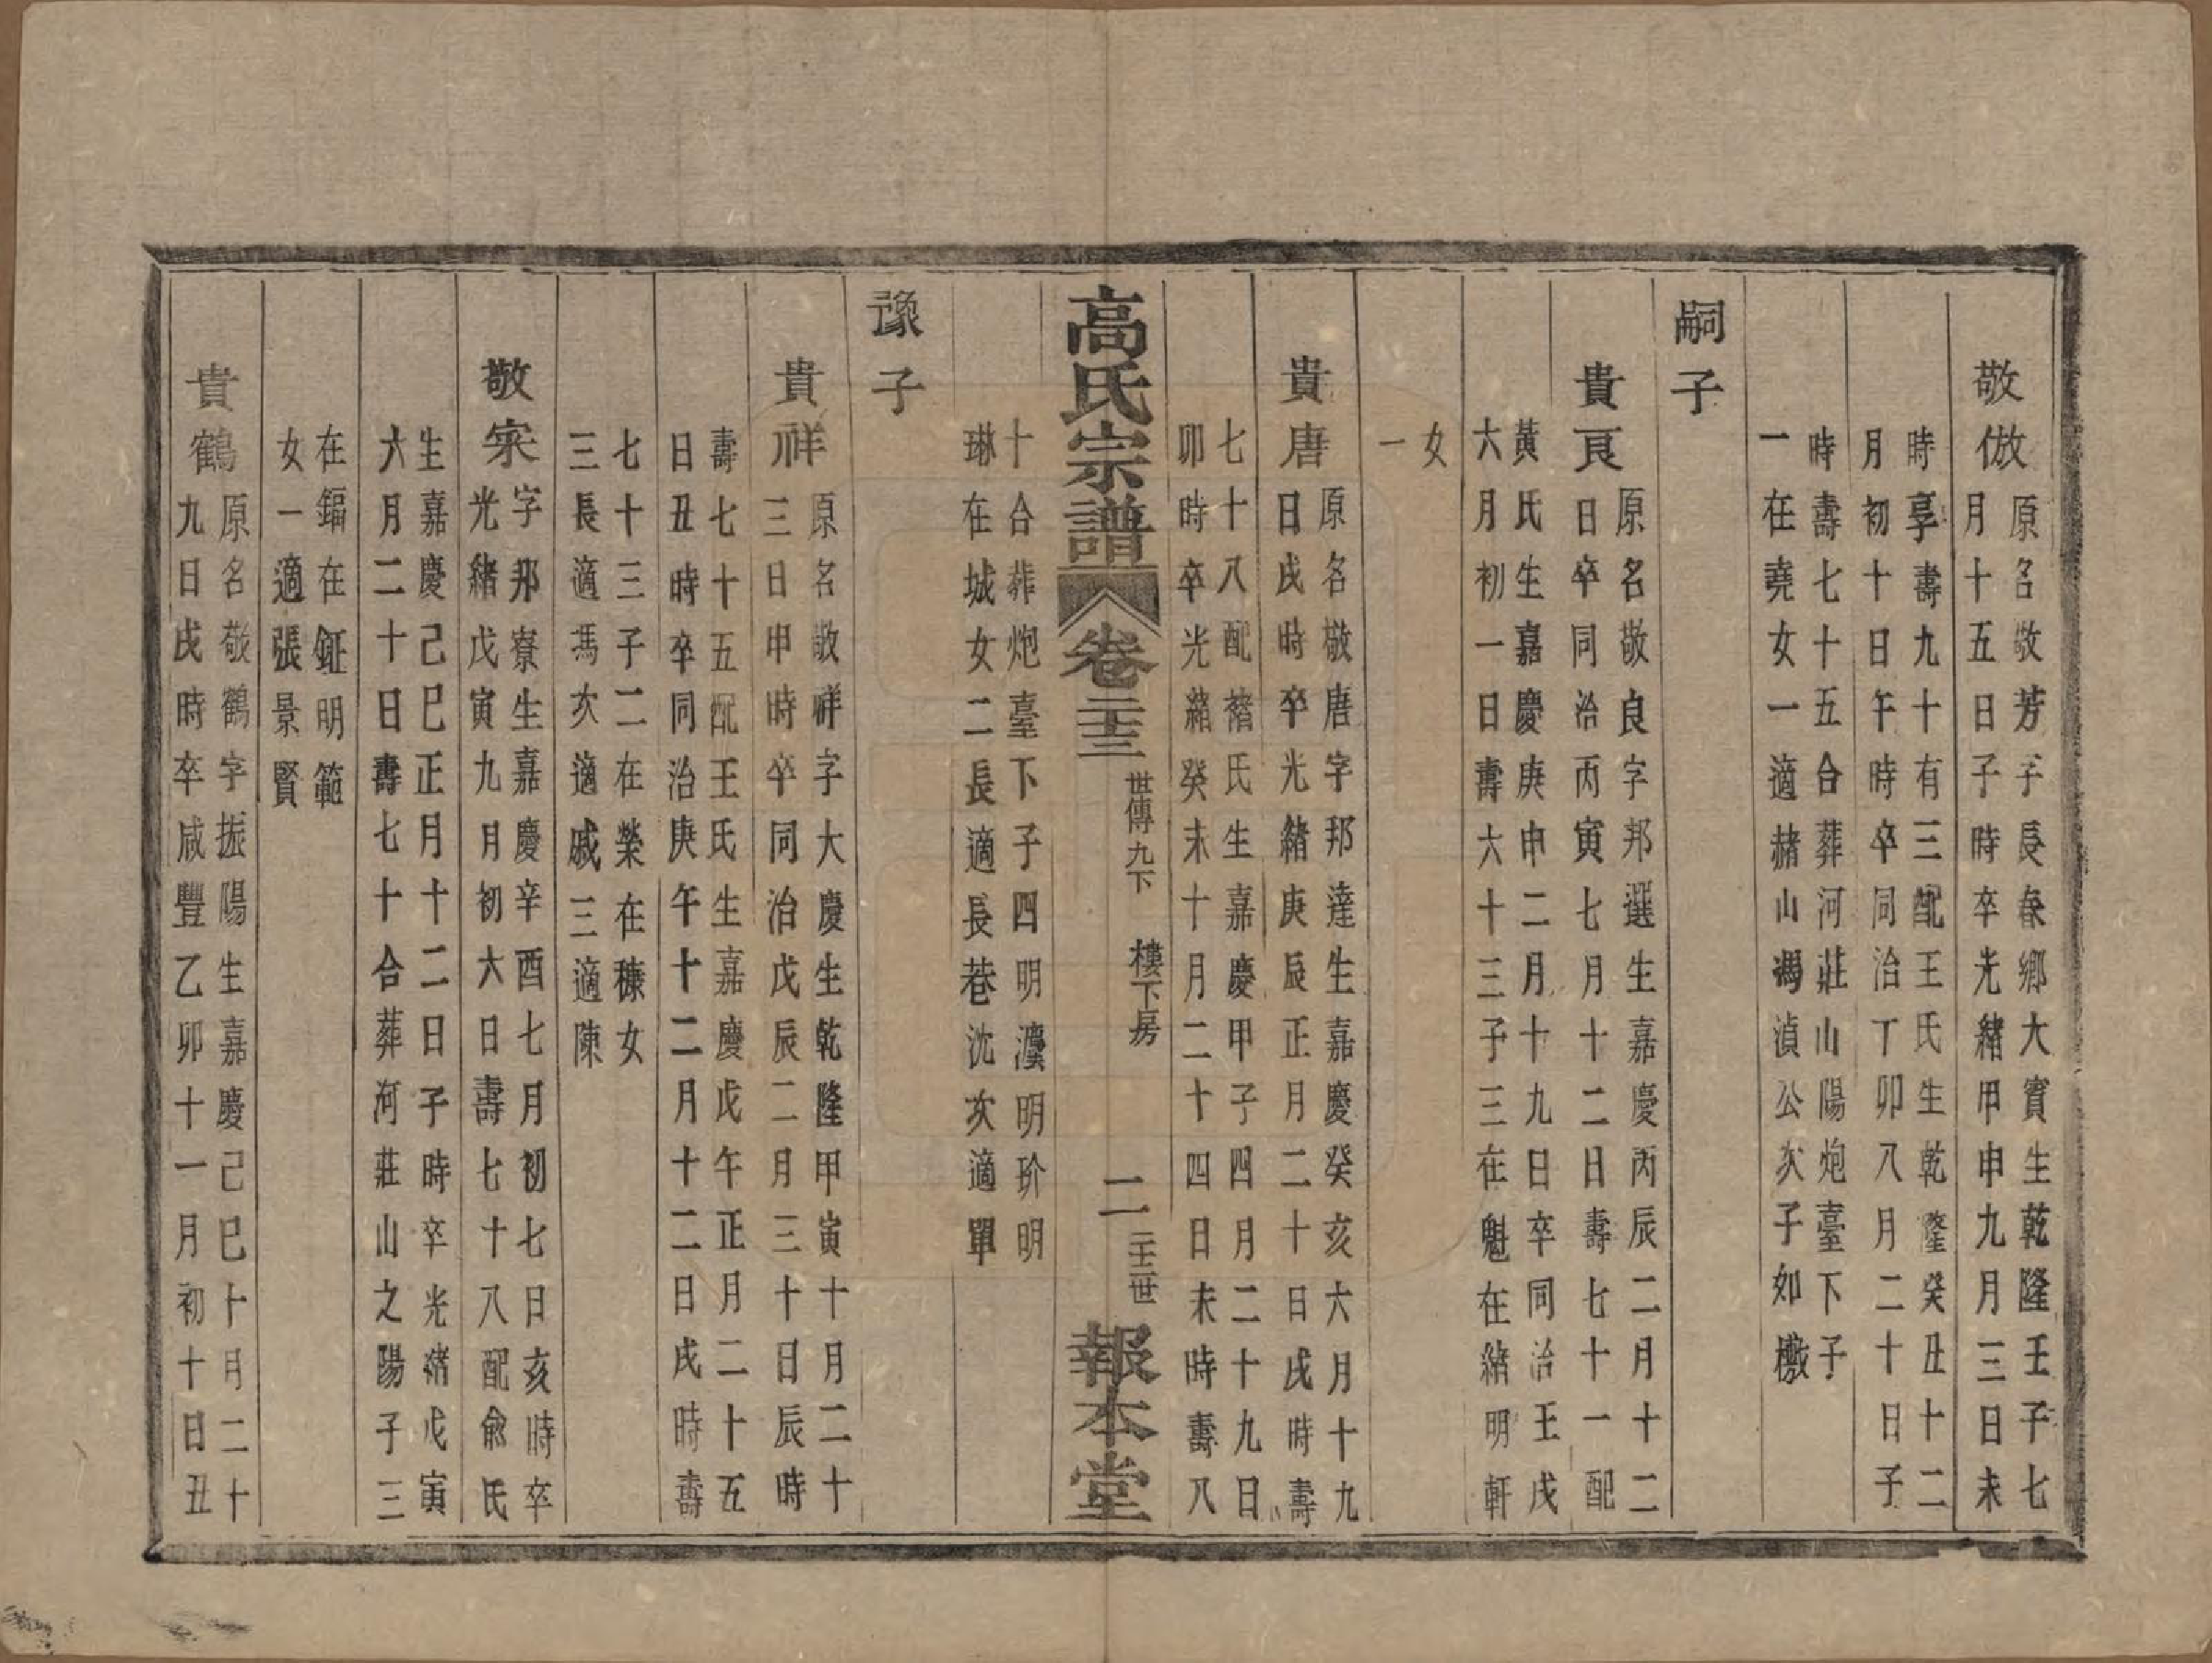 敬倣
原名敬芳字長春鄉大賓生乾隆壬子七
月十五日子時卒光緒甲申九月三日未
時享壽九十有三配王氏生乾隆癸丑十二
月初十日午時卒同治丁卯八月二十日子
時壽七十五合葬河莊山陽炮臺下子
一在堯女一適赭山馮湞公次子如檄
嗣子
貴良
原名敬良字邦選生嘉慶丙辰二月十二
日卒同治丙寅七月十二日壽七十一配
黃氏生嘉慶庚申二月十九日卒同治壬戌
六月初一日壽六十三子三在魁在緒明軒
女
一
貴唐
原名敬唐字邦達生嘉慶癸亥六月十九
日戌時卒光緒庚辰正月二十日戌時壽
七十八配褚氏生嘉慶甲子四月二十九日
卯時卒光緒癸未十月二十四日未時壽八
十合葬炮臺下子四明瀴明玠明
琳在城女二長適長巷沈次適單
高氏宗譜 卷二十三 世傳九下 樓下房 二 二十二世 報本堂
豫子
貴祥
原名敬祥字大慶生乾隆甲寅十月二十
三日申時卒同治戊辰二月三十日辰時
壽七十五配王氏生嘉慶戊午正月二十五
日丑時卒同治庚午十二月十二日戌時壽
七十三子二在榮在穅女
三長適馮次適戚三適陳
敬宷
字邦寮生嘉慶辛酉七月初七日亥時卒
光緒戊寅九月初六日壽七十八配俞氏
生嘉慶己巳正月十二日子時卒光緒戊寅
六月二十日壽七十合葬河莊山之陽子三
在鍢在鉦明範
女一適張景賢
貴鶴
原名敬鶴字振陽生嘉慶己巳十月二十
九日戌時卒咸豐乙卯十一月初十日丑